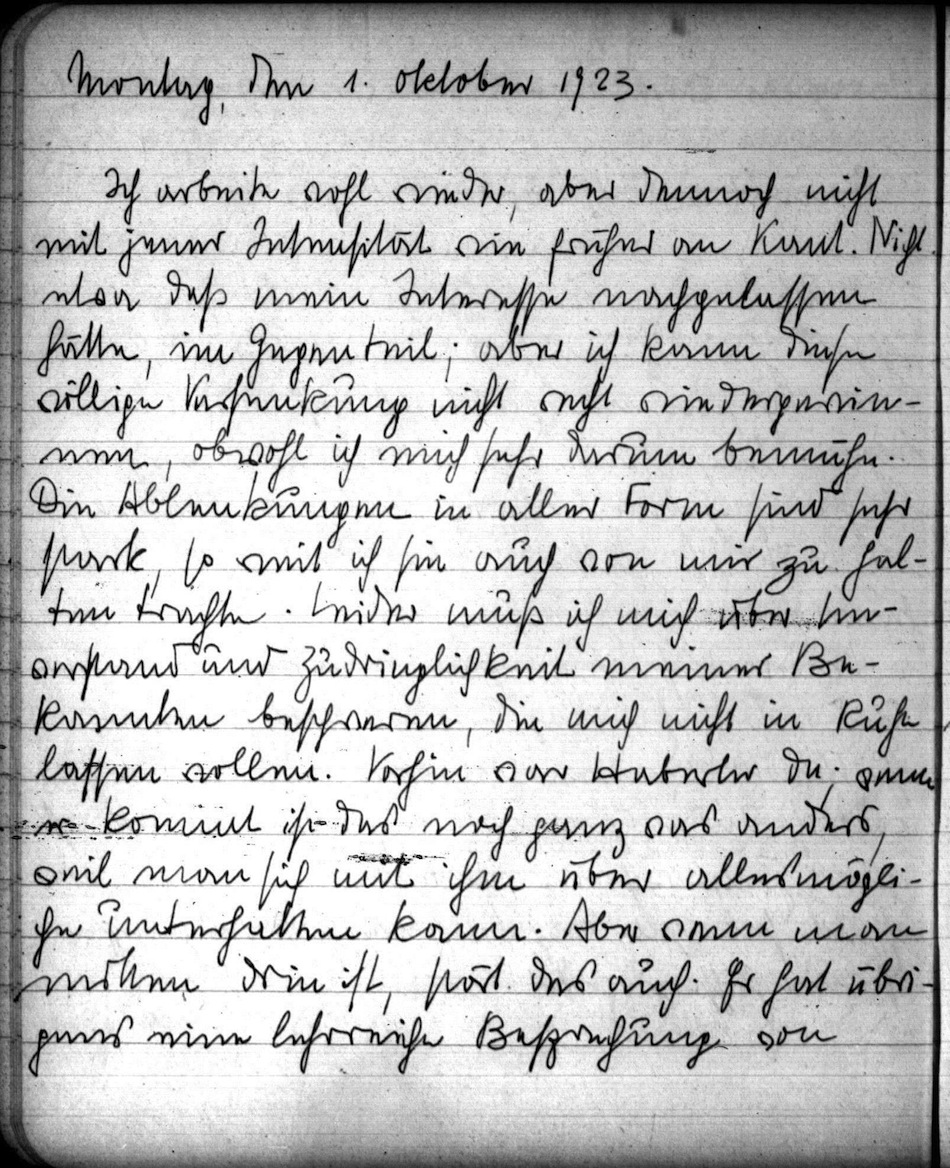 Montag, den 1. Oktober 1923.
Ich arbeite wohl wieder, aber dennoch nicht
mit jener Intensität wie früher an Kant. Nicht
etwa daß mein Interesse nachgelassen
hätte, im Gegenteil; aber ich kann diese
völlige Versenkung nicht recht wiedergewin-
nen, obwohl ich mich sehr darum bemühe.
Die Ablenkungen in aller Form sind sehr
stark, so weit ich sie auch von mir zu hal-
ten trachte. Leider muß ich mich über Un-
verstand und Zudringlichkeit meiner Be-
kannten beschweren, die mich nicht in Ruhe
lassen wollen. Vorhin war Haberler da; wenn
er kommt ist das noch ganz was anders,
weil man sich mit ihm über allesmögli-
che unterhalten kann. Aber wenn man
mitten drin ist, stört das auch. Er hat übri-
gens eine lehrreiche Besprechung von